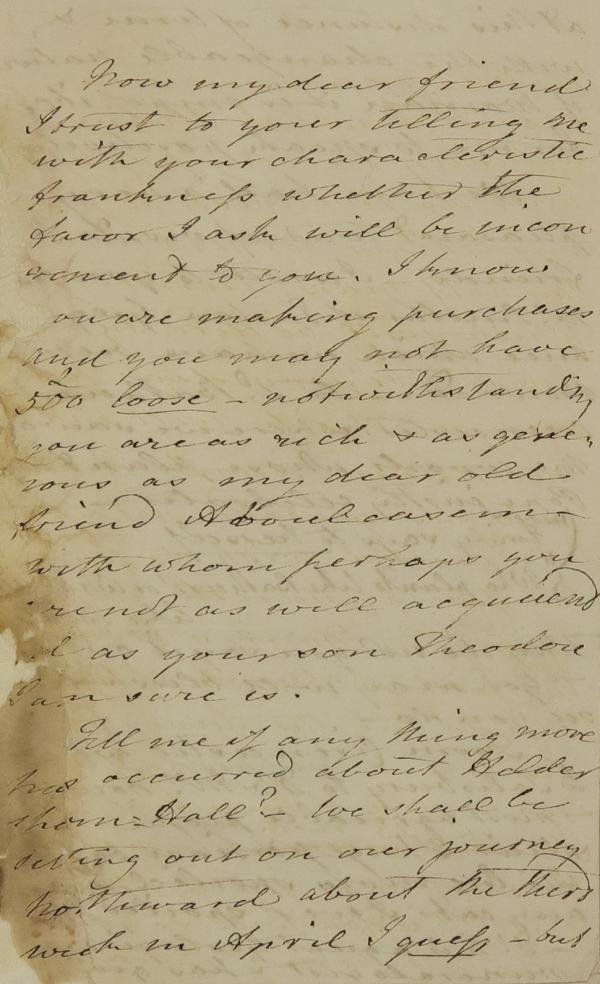 Now my dear friend
I trust to your telling me
with your characteristic
frankness whether the
favor I ask will be incon
venient to you. I know
ou are making purchases
and you may not have
500 loose - notwithstandg
you are as rich & as gene-
rous as my dear old
friend Aboulcasem -
with whom perhaps you
are not as well acquaint
ed as your son Theodore
I am sure is.
Tell me if any thing more
has occurred about Helder
shom-Hall? - We shall be
setting out on our journey
northward about the third
week in April I guess - but